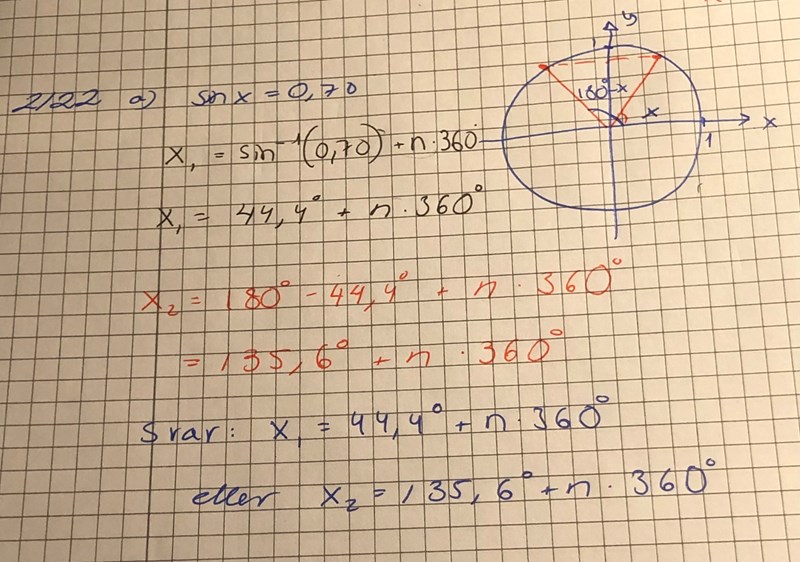 2122 a) sin x = 0,70
x₁ = sin⁻¹(0,70) + n·360
x₁ = 44,4° + n·360°
x₂ = 180° - 44,4° + n·360°
= 135,6° + n·360°
Svar: x₁ = 44,4° + n·360°
eller x₂ = 135,6° + n·360°
y
1
180°-x
x
x
1